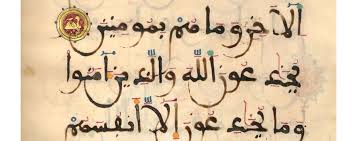 الاخر وما هم بمومنين
يخدعون الله والذين امنوا
وما يخدعون الا انفسهم